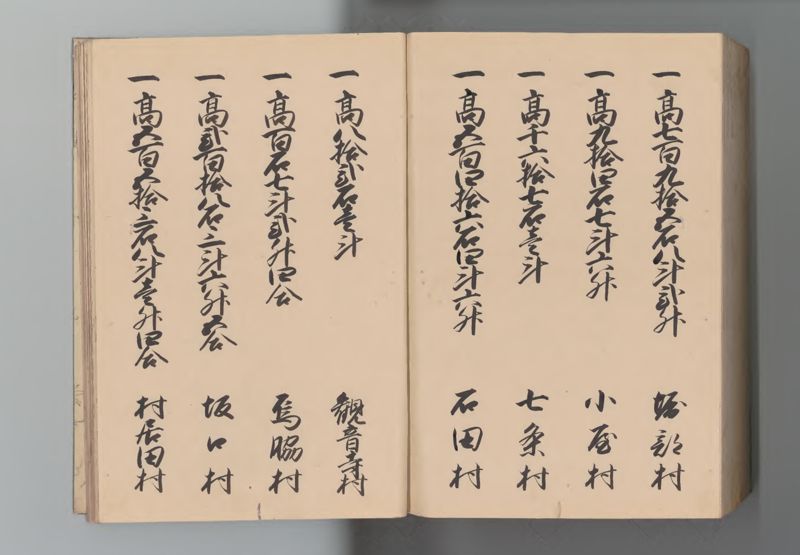 一高七百九拾五石八斗弐升 堀部村
一高九拾四石七斗六升 小屋村
一高千六拾七石壱斗 七条村
一高五百四拾六石四斗六升 石田村
一高八拾弐石壱斗 観音寺村
一高百石七斗弐升四合 鳥脇村
一高弐百拾八石三斗六升五合 坂口村
一高五百五拾三石八斗壱升四合 村居田村